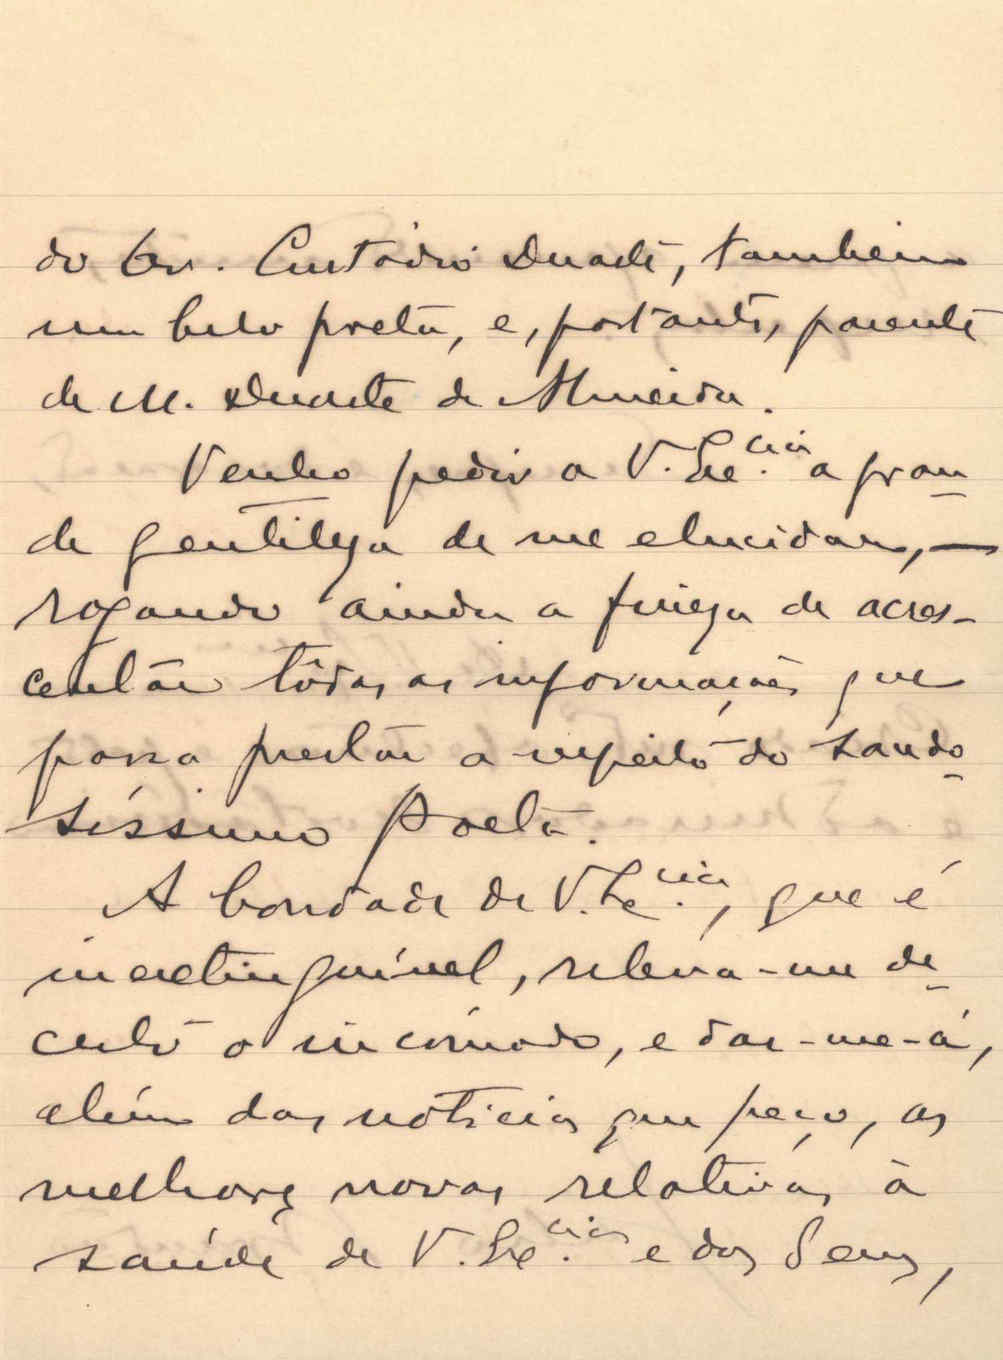 do Cons. Custódio Duarte, tambem
um belo poeta, e, portanto, parente
de M. Duarte de Almeida.
Venho pedir a V. Ex.cia a gran-
de gentileza de me elucidar, —
rogando ainda a fineza de acres-
centar tôdas as informações que
possa prestar a respeito do saudo-
síssimo Poeta.
A bondade de V. Ex.cia, que é
inextinguível, releva-me de-
certo o incómodo, e dar-me-á,
além das notícias que peço, as
melhores novas relativas à
saúde de V. Ex.cia e dos Seus,